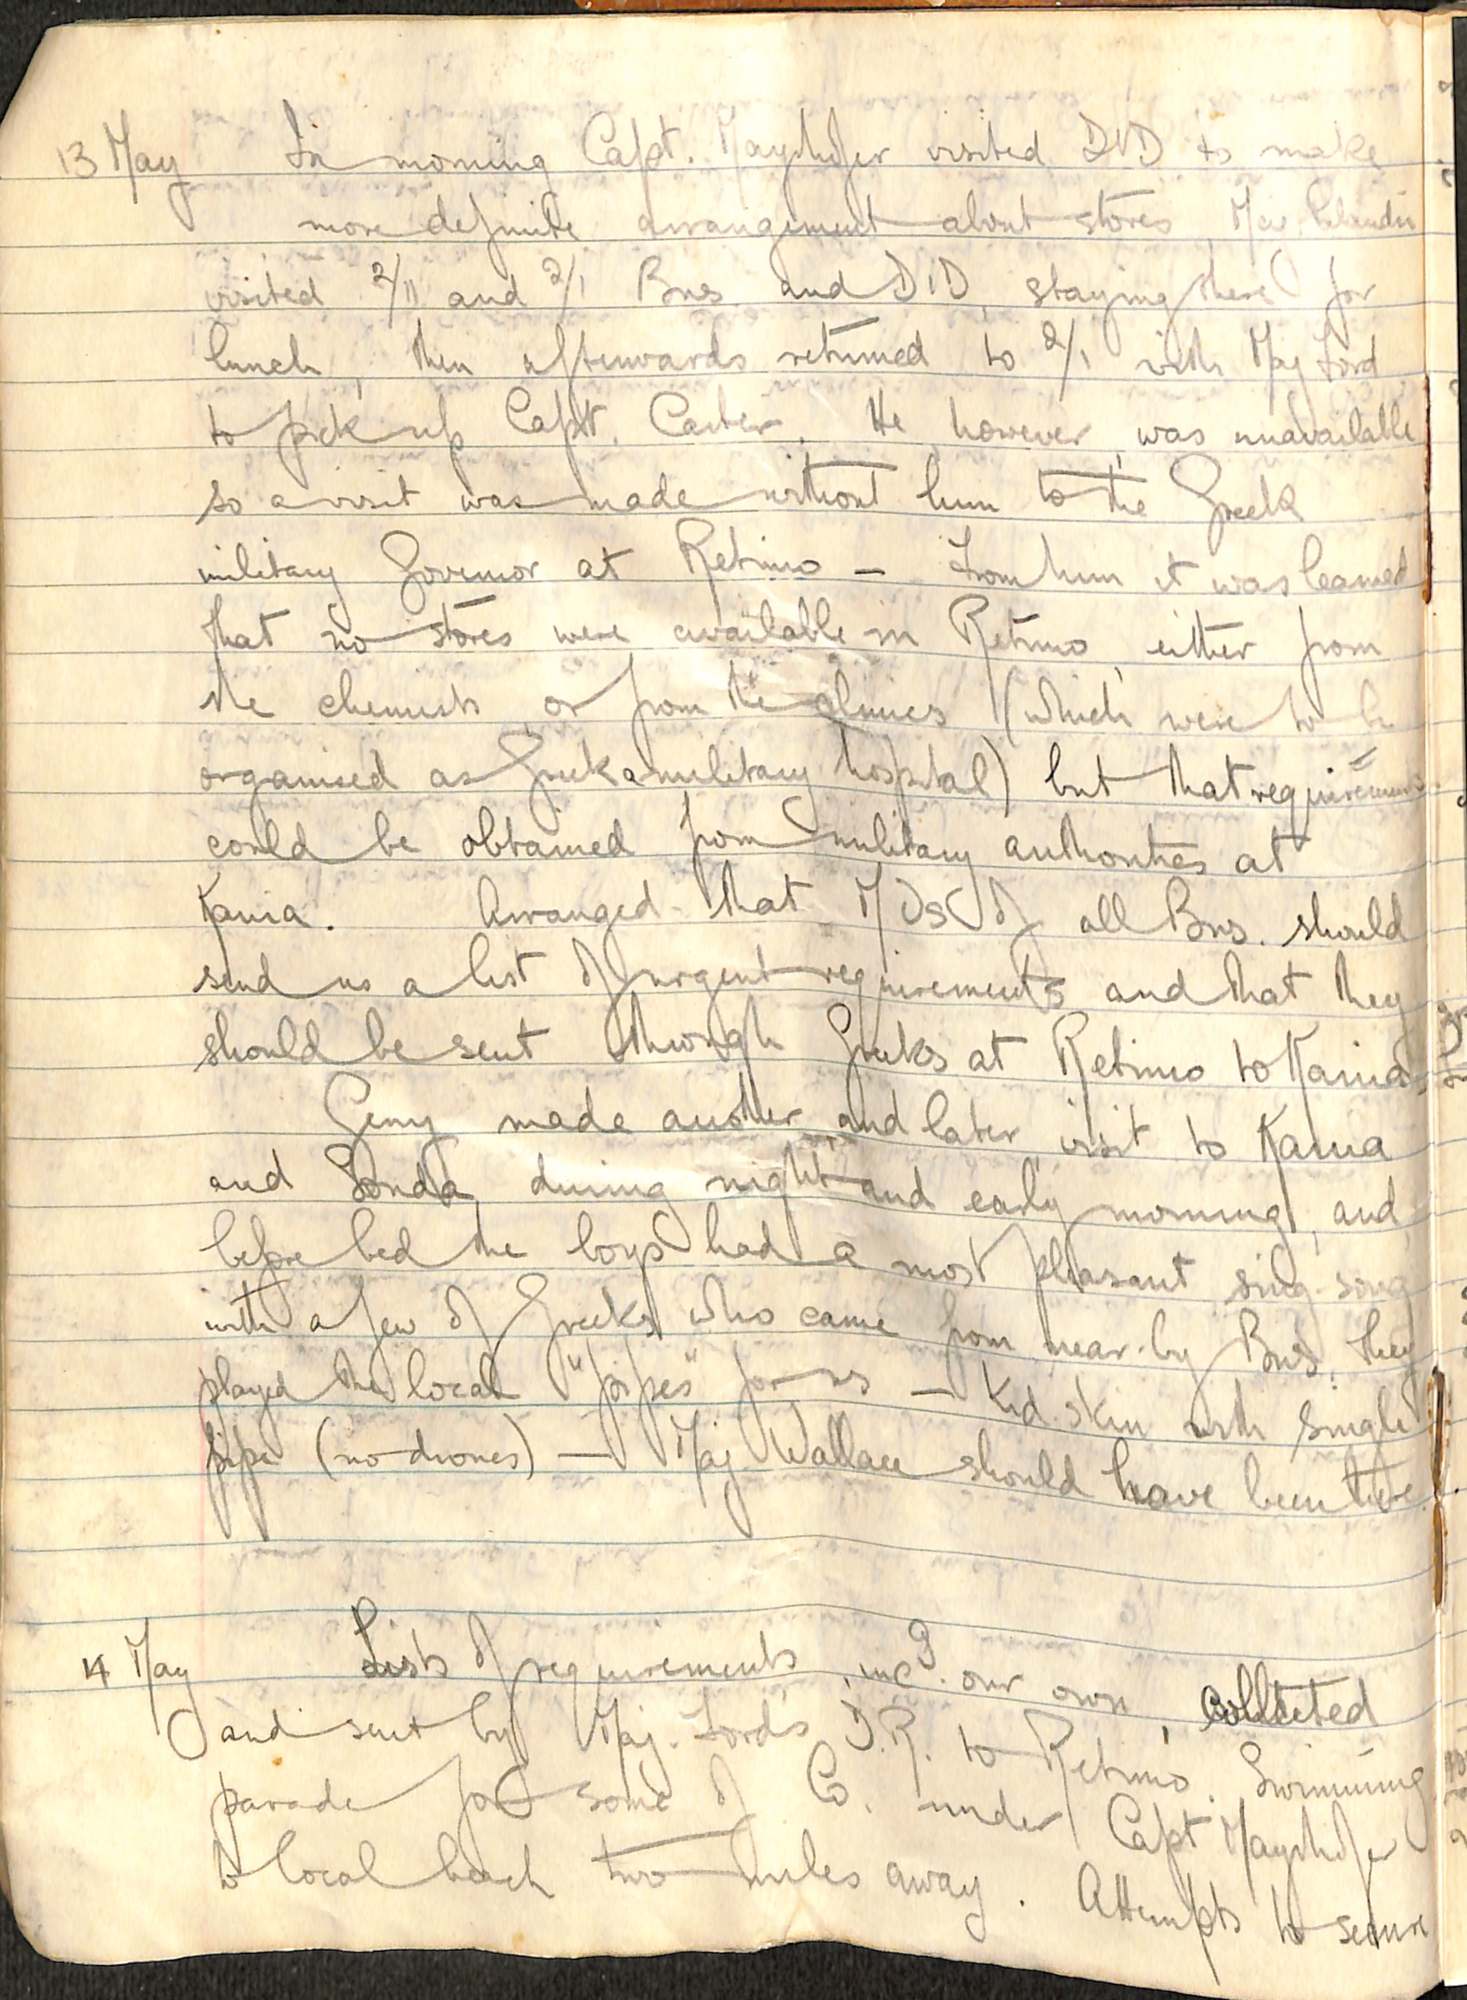 13 May In morning Capt. Mayrhofer visited DID to make
more definite arrangement about stores, Maj.
visited 2/11 and 2/1 Bns and DID, staying there for
lunch, then afterwards returned to 2/1 with Maj Ford
to pick up Capt. Carter. He, however, was unavailable
so a visit was made without him to the Greek
military Governor at Retimo — From him it was learned
that no stores were available in Retimo, either from
the chemists or from the clinics (which were to be
organised as Greek a military hospital) but that requirements
could be obtained from military authorities at
Kania. Arranged that MOs of all Bns. should
send us a list of urgent requirements and that they
should be sent through Greeks at Retimo to Kania.
made another and later visit to Kania
and Souda, during night and early morning, and
before bed the boys had a most pleasant sing-song
with a few of Greeks who came from near-by Bns, they
played the local "pipes" for us — Kid-skin with single
pipe (no drones) — Maj Wallace should have been there.
14 May Lists of requirements, incg. our own, collected
and sent by Maj. Ford's D.R. to Retimo. Swimming
parade for some of Co. under Capt Mayrhofer
to local beach two miles away. Attempts to secure